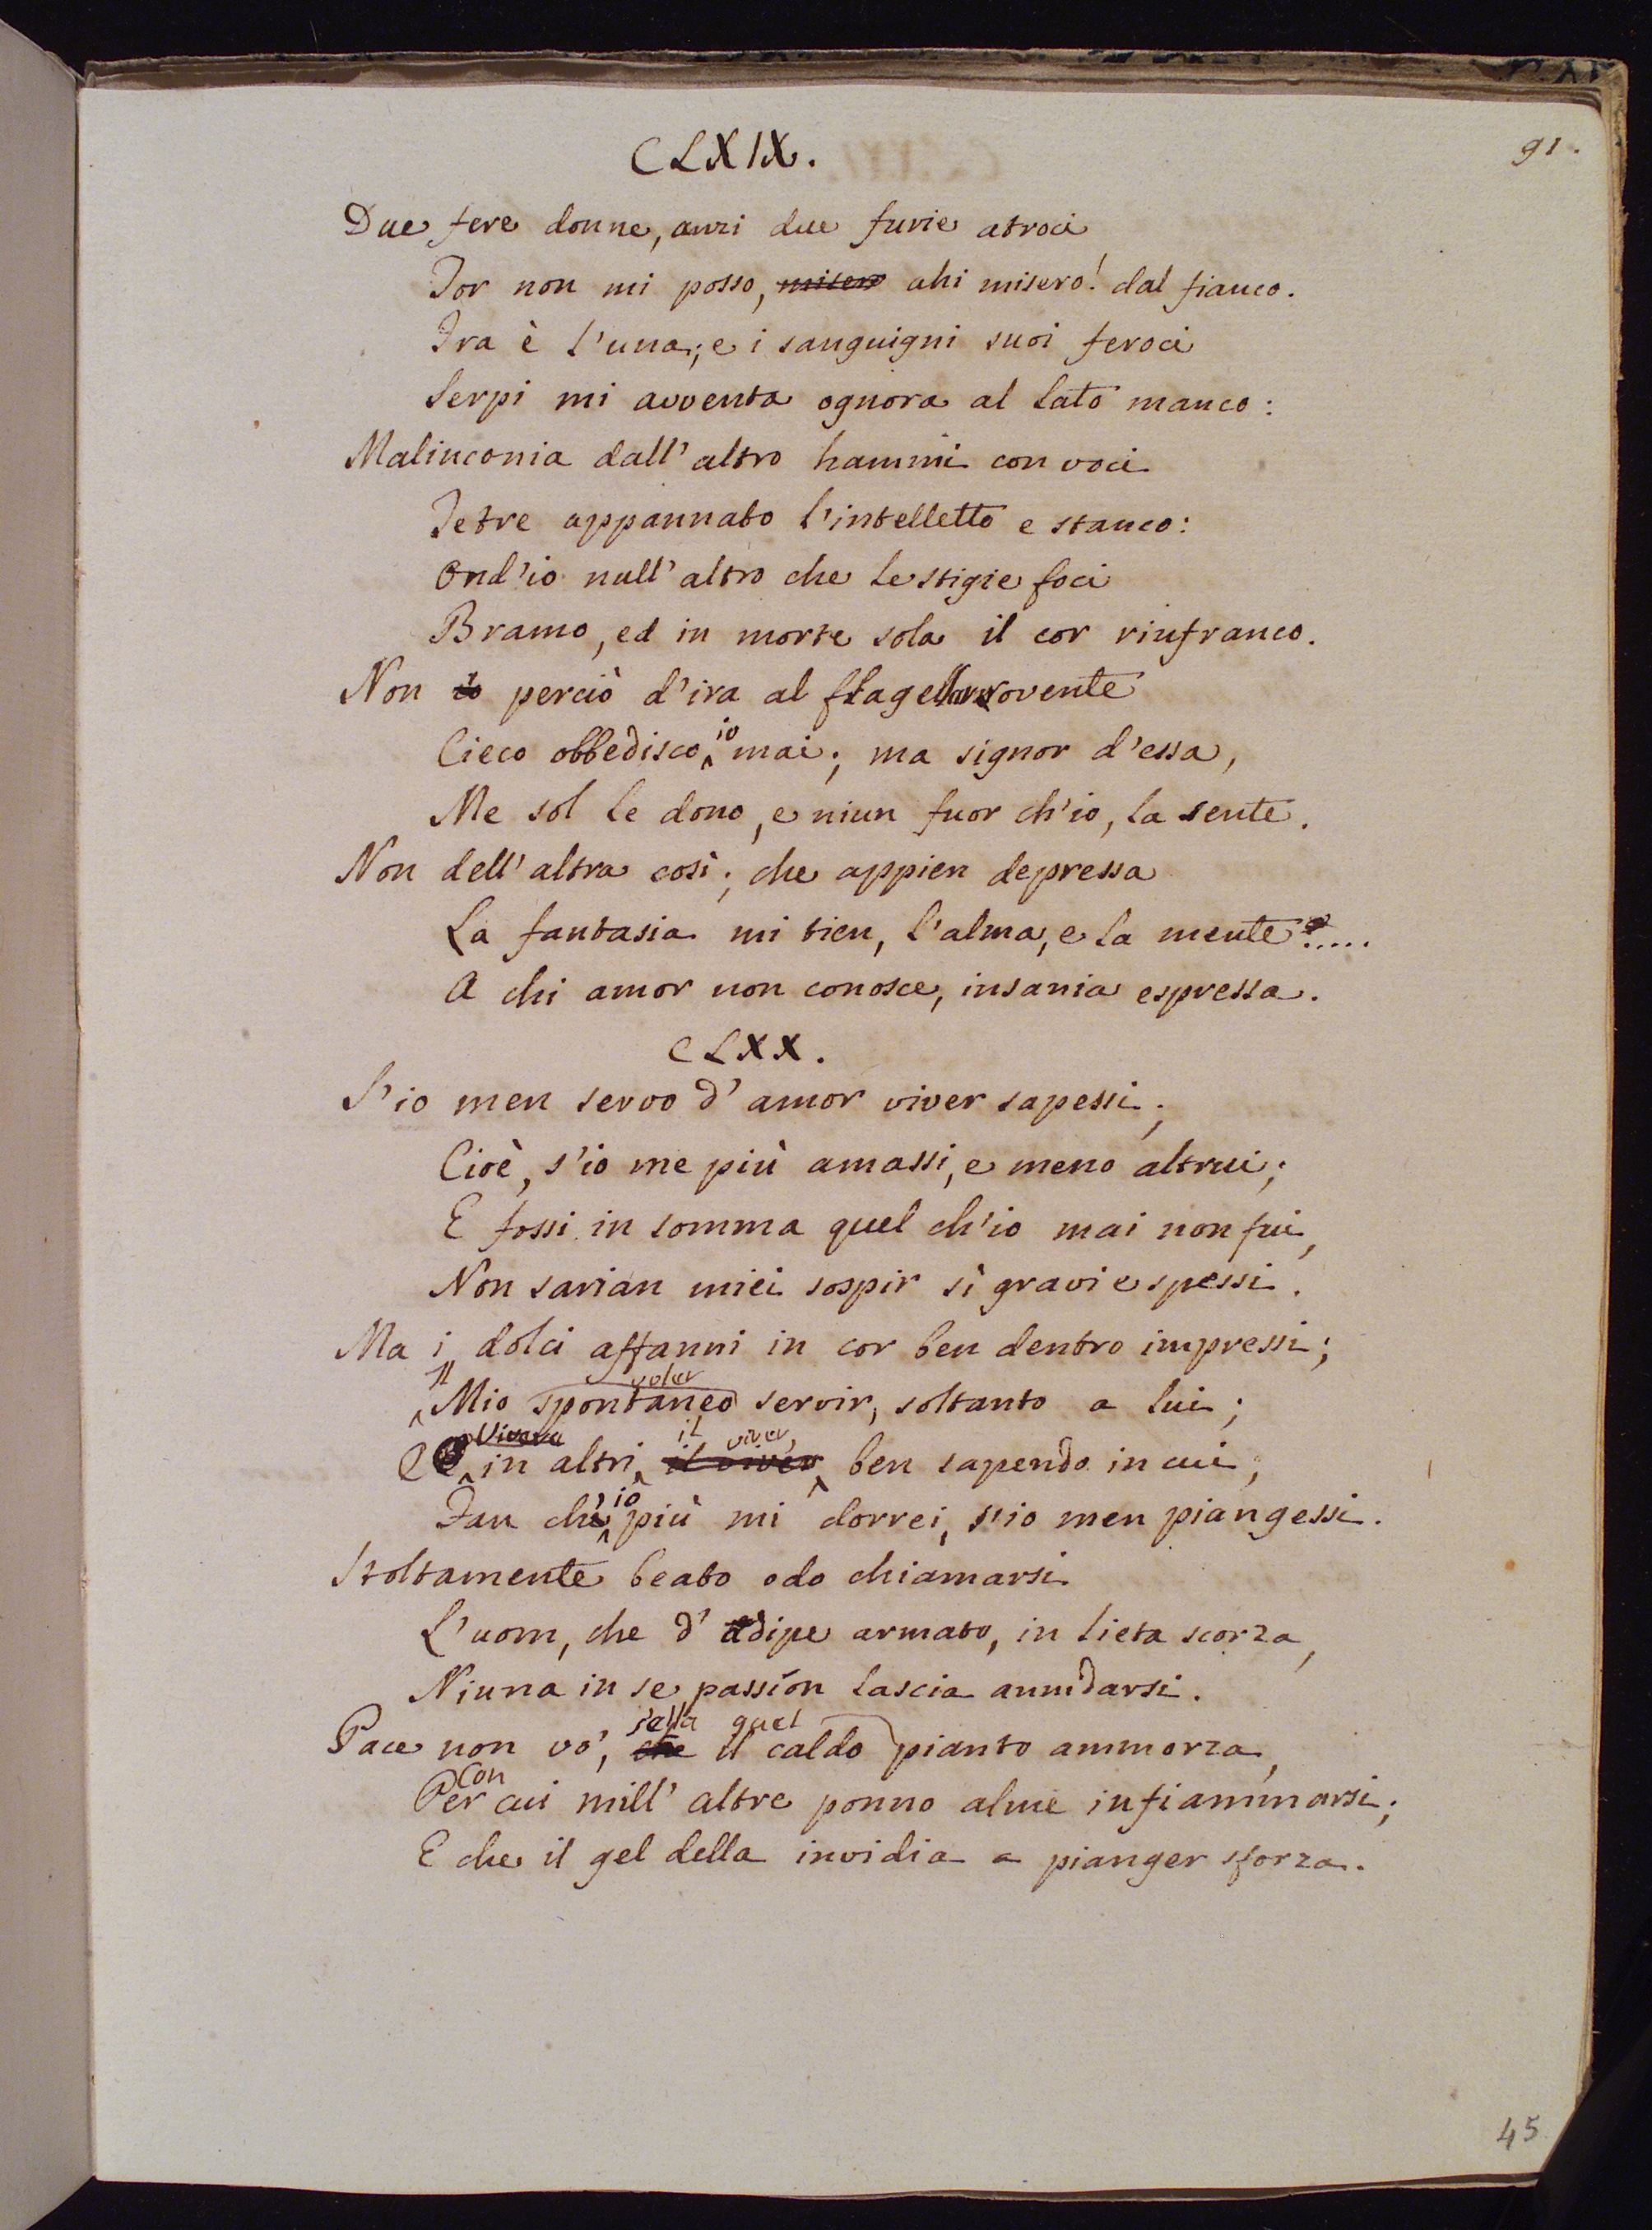 91.
CLXIX.
Due fere donne, anzi due furie atroci
Tor non mi posso, misero ahi misero! dal fianco.
Ira è l'una; e i sanguigni suoi feroci
Serpi mi avventa ognora al lato manco:
Malinconia dall'altro hammi con voci
Tetre appannato l'intelletto e stanco:
Ond'io null'altro che le stigie foci
Bramo, ed in morte sola il cor rinfranco.
Non io perciò d'ira al flagello rovente
Cieco obbedisco io mai; ma signor d'essa,
Me sol le dono, e niun fuor ch'io, la sente.
Non dell'altra così; che appien depressa
La fantasia mi tien, l'alma, e la mente.....
A chi amor non conosce, insania espressa.
CLXX.
S'io men servo d'amor viver sapessi;
Cioè, s'io me più amassi, e meno altrui;
E fossi in somma quel ch'io mai non fui,
Non sarian miei sospir sì gravi e spessi.
Ma i dolci affanni in cor ben dentro impressi;
Il voler
Mio spontaneo servir, soltanto a lui;
Vivere il viver,
E in altri, il viver ben sapendo in cui;
io
Fan ch' più mi dorrei, s'io men piangessi.
Stoltamente beato odo chiamarsi
L'uom, che d'adipe armato, in lieta scorza,
Niuna in se passion lascia annidarsi.
s'ella quel
Pace non vo', che il caldo pianto ammorza,
Con
Per cui mill'altre ponno alme infiammarsi;
E che il gel della invidia a pianger sforza.
45